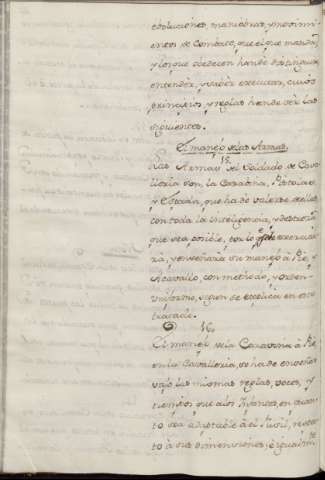 eboluciones, maniobras, y movimi-
entos de Combate, que el que manda,
y los que obedecen han de distinguir,
entender, y saber executar, cuios
principios, y reglas han de ser las
siguientes.
El manejo de las Armas.
15.
Las Armas del Soldado de Cava-
lleria son, la Caravina, Pistolas,
y Espada, que ha de valerse de ellas
con toda la inteligencia, y destreza
que sea posible, por lo que se exercita-
rá, y enseñará su manejo à Pie, y
à Cavallo, con methodo, y orden
uniforme, segun se explica en este
tratado.
16.
El manejo de la Caravina à Pie
en la Cavalleria, se ha de enseñar
vajo las mismas reglas, voces, y
tiempos que à los Infantes, en quan-
to sea adaptable à el Fusil, respec-
to à sus dimensiones, è igualmte.